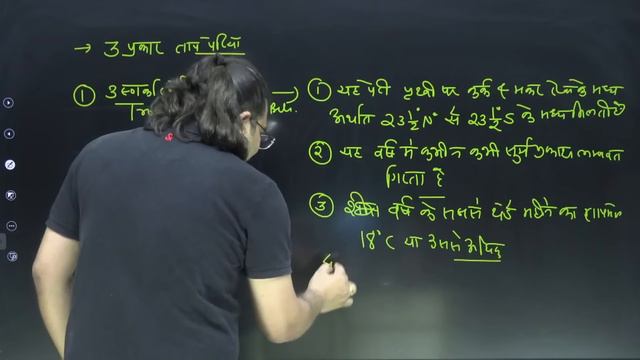 → 3 प्रकार ताप पेटियाँ
① उष्णकटि
→ ① यह पेटी पृथ्वी पर कर्क व मकर रेखा के मध्य
अर्थात 23½°N से 23½°S के मध्य मिलती है
② यह वर्ष में कभी न कभी सूर्य प्रकाश लम्बवत
गिरता है
③ वर्ष के सबसे ठंडे महीने का तापमान
18°C या उससे अधिक